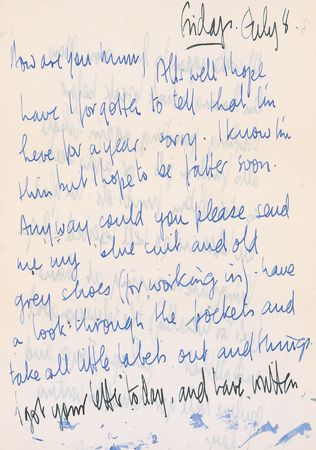 Friday. July 8.
How are you mummy All well I hope
have I forgotten to tell that I'm
here for a year. sorry. I know I'm
thin but I hope to be fatter soon.
Anyway could you please send
me my blue suit and old
grey shoes (for working in). have
a look through the pockets and
take all little labels out and things.
I got your letter today, and have written